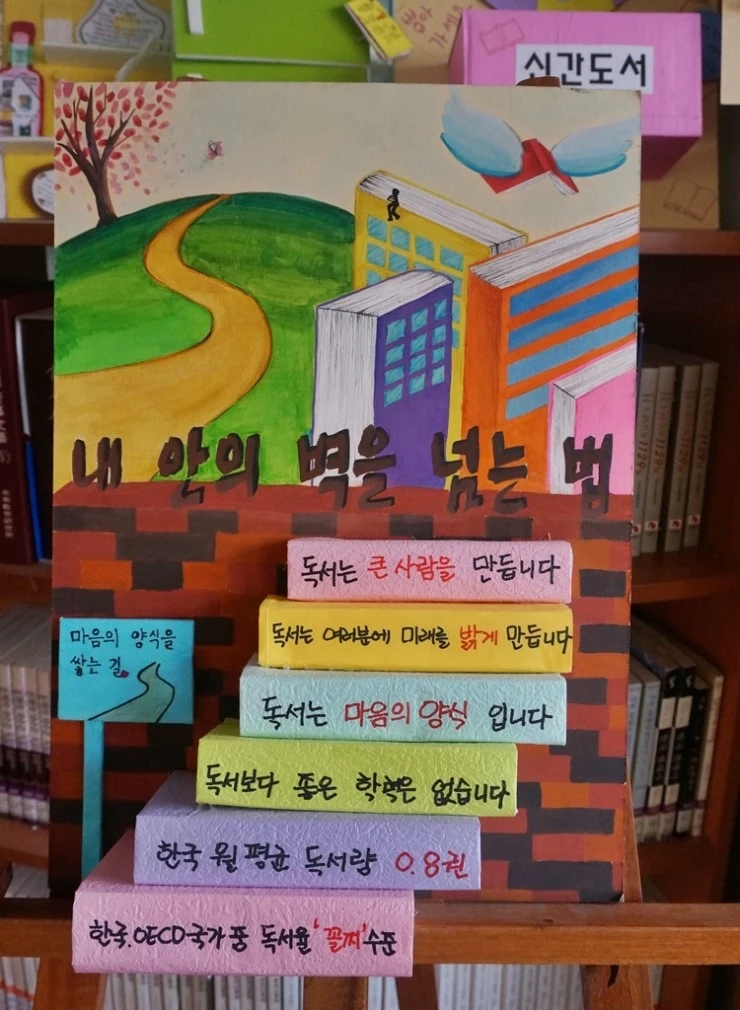 신간도서
내 안의 벽을 넘는 법
독서는 큰 사람을 만듭니다
독서는 여러분에 미래를 밝게 만듭니다
마음의 양식을
쌓는 길
독서는 마음의 양식 입니다
독서보다 좋은 학력은 없습니다
한국 월 평균 독서량 0.8권
한국. OECD국가 중 독서율 '꼴찌' 수준